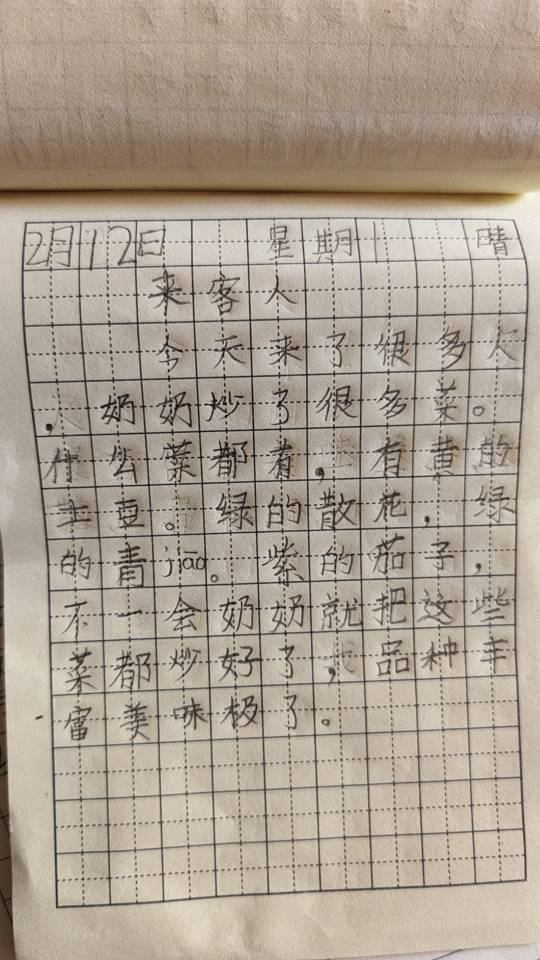 2月12日 星期一 晴
来客人
今天来了很多人
，奶奶炒了很多菜。
什么菜都有，有黄的
土豆。绿的散花，绿
的青jiāo。紫的茄子，
不一会奶奶就把这些
菜都炒好了，品种丰
富美味极了。